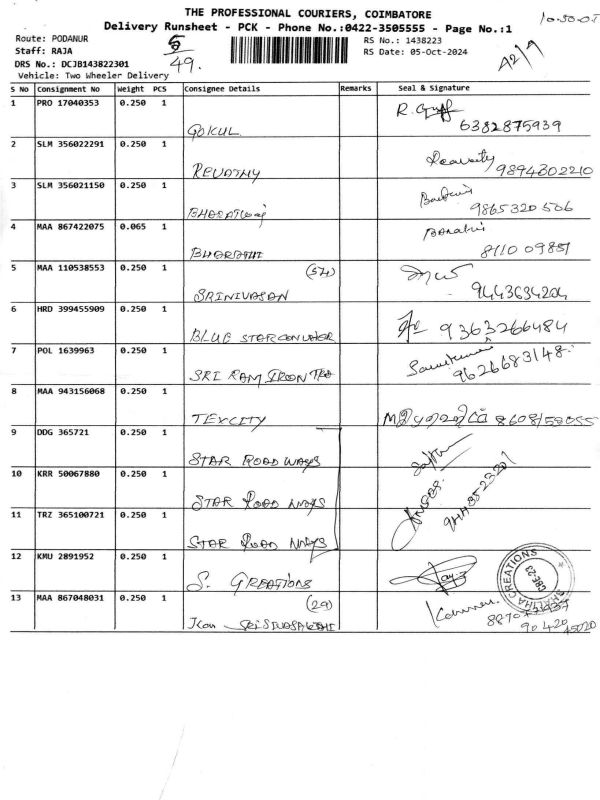 THE PROFESSIONAL COURIERS, COIMBATORE
Delivery Runsheet - PCK - Phone No.:0422-3505555 - Page No.:1
Route: PODANUR
Staff: RAJA
DRS No.: DCJB143822301
Vehicle: Two Wheeler Delivery
49.
RS No.: 1438223
RS Date: 05-Oct-2024
S No Consignment No Weight PCS Consignee Details Remarks Seal & Signature
1 PRO 17040353 0.250 1 GOKUL 6382875939
2 SLM 356022291 0.250 1 REVATHY 9894302210
3 SLM 356021150 0.250 1 9865320506
4 MAA 867422075 0.065 1 BHARATHI
5 MAA 110538553 0.250 1 SRINIVASAN 9443634204
6 HRD 399455909 0.250 1 BLUE STAR 9363266484
7 POL 1639963 0.250 1 SRI RAM IRON 9626683148
8 MAA 943156068 0.250 1 TEXCITY
9 DDG 365721 0.250 1 STAR ROAD WAYS
10 KRR 50067880 0.250 1 STAR ROAD WAYS
11 TRZ 365100721 0.250 1 STAR ROAD WAYS
12 KMU 2891952 0.250 1 S. CREATIONS
CREATIONS
CBE-23
13 MAA 867048031 0.250 1 (29)